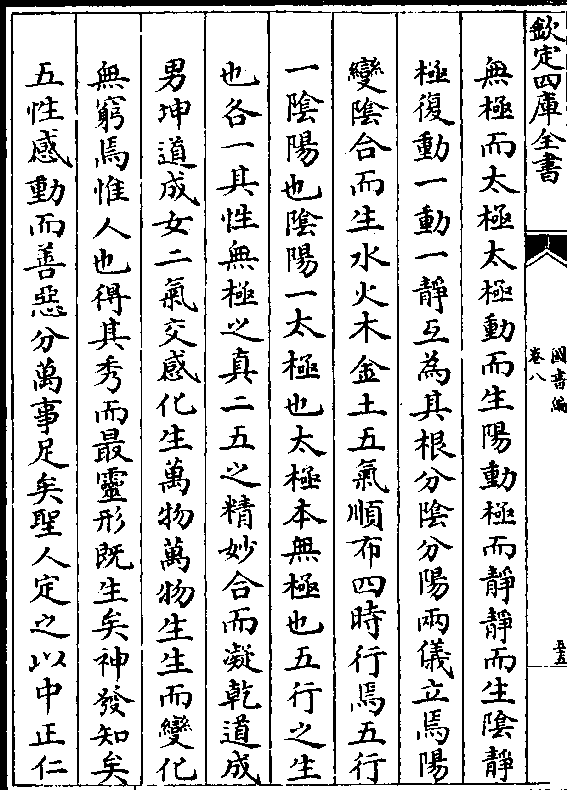 欽定四庫全書
圖書編
卷八
無極而太極太極動而生陽動極而靜靜而生陰靜
極復動一動一靜互為其根分陰分陽兩儀立焉陽
變陰合而生水火木金土五氣順布四時行焉五行
一陰陽也陰陽一太極也太極本無極也五行之生
也各一其性無極之真二五之精妙合而凝乾道成
男坤道成女二氣交感化生萬物萬物生生而變化
無窮焉惟人也得其秀而最靈形既生矣神發知矣
五性感動而善惡分萬事足矣聖人定之以中正仁